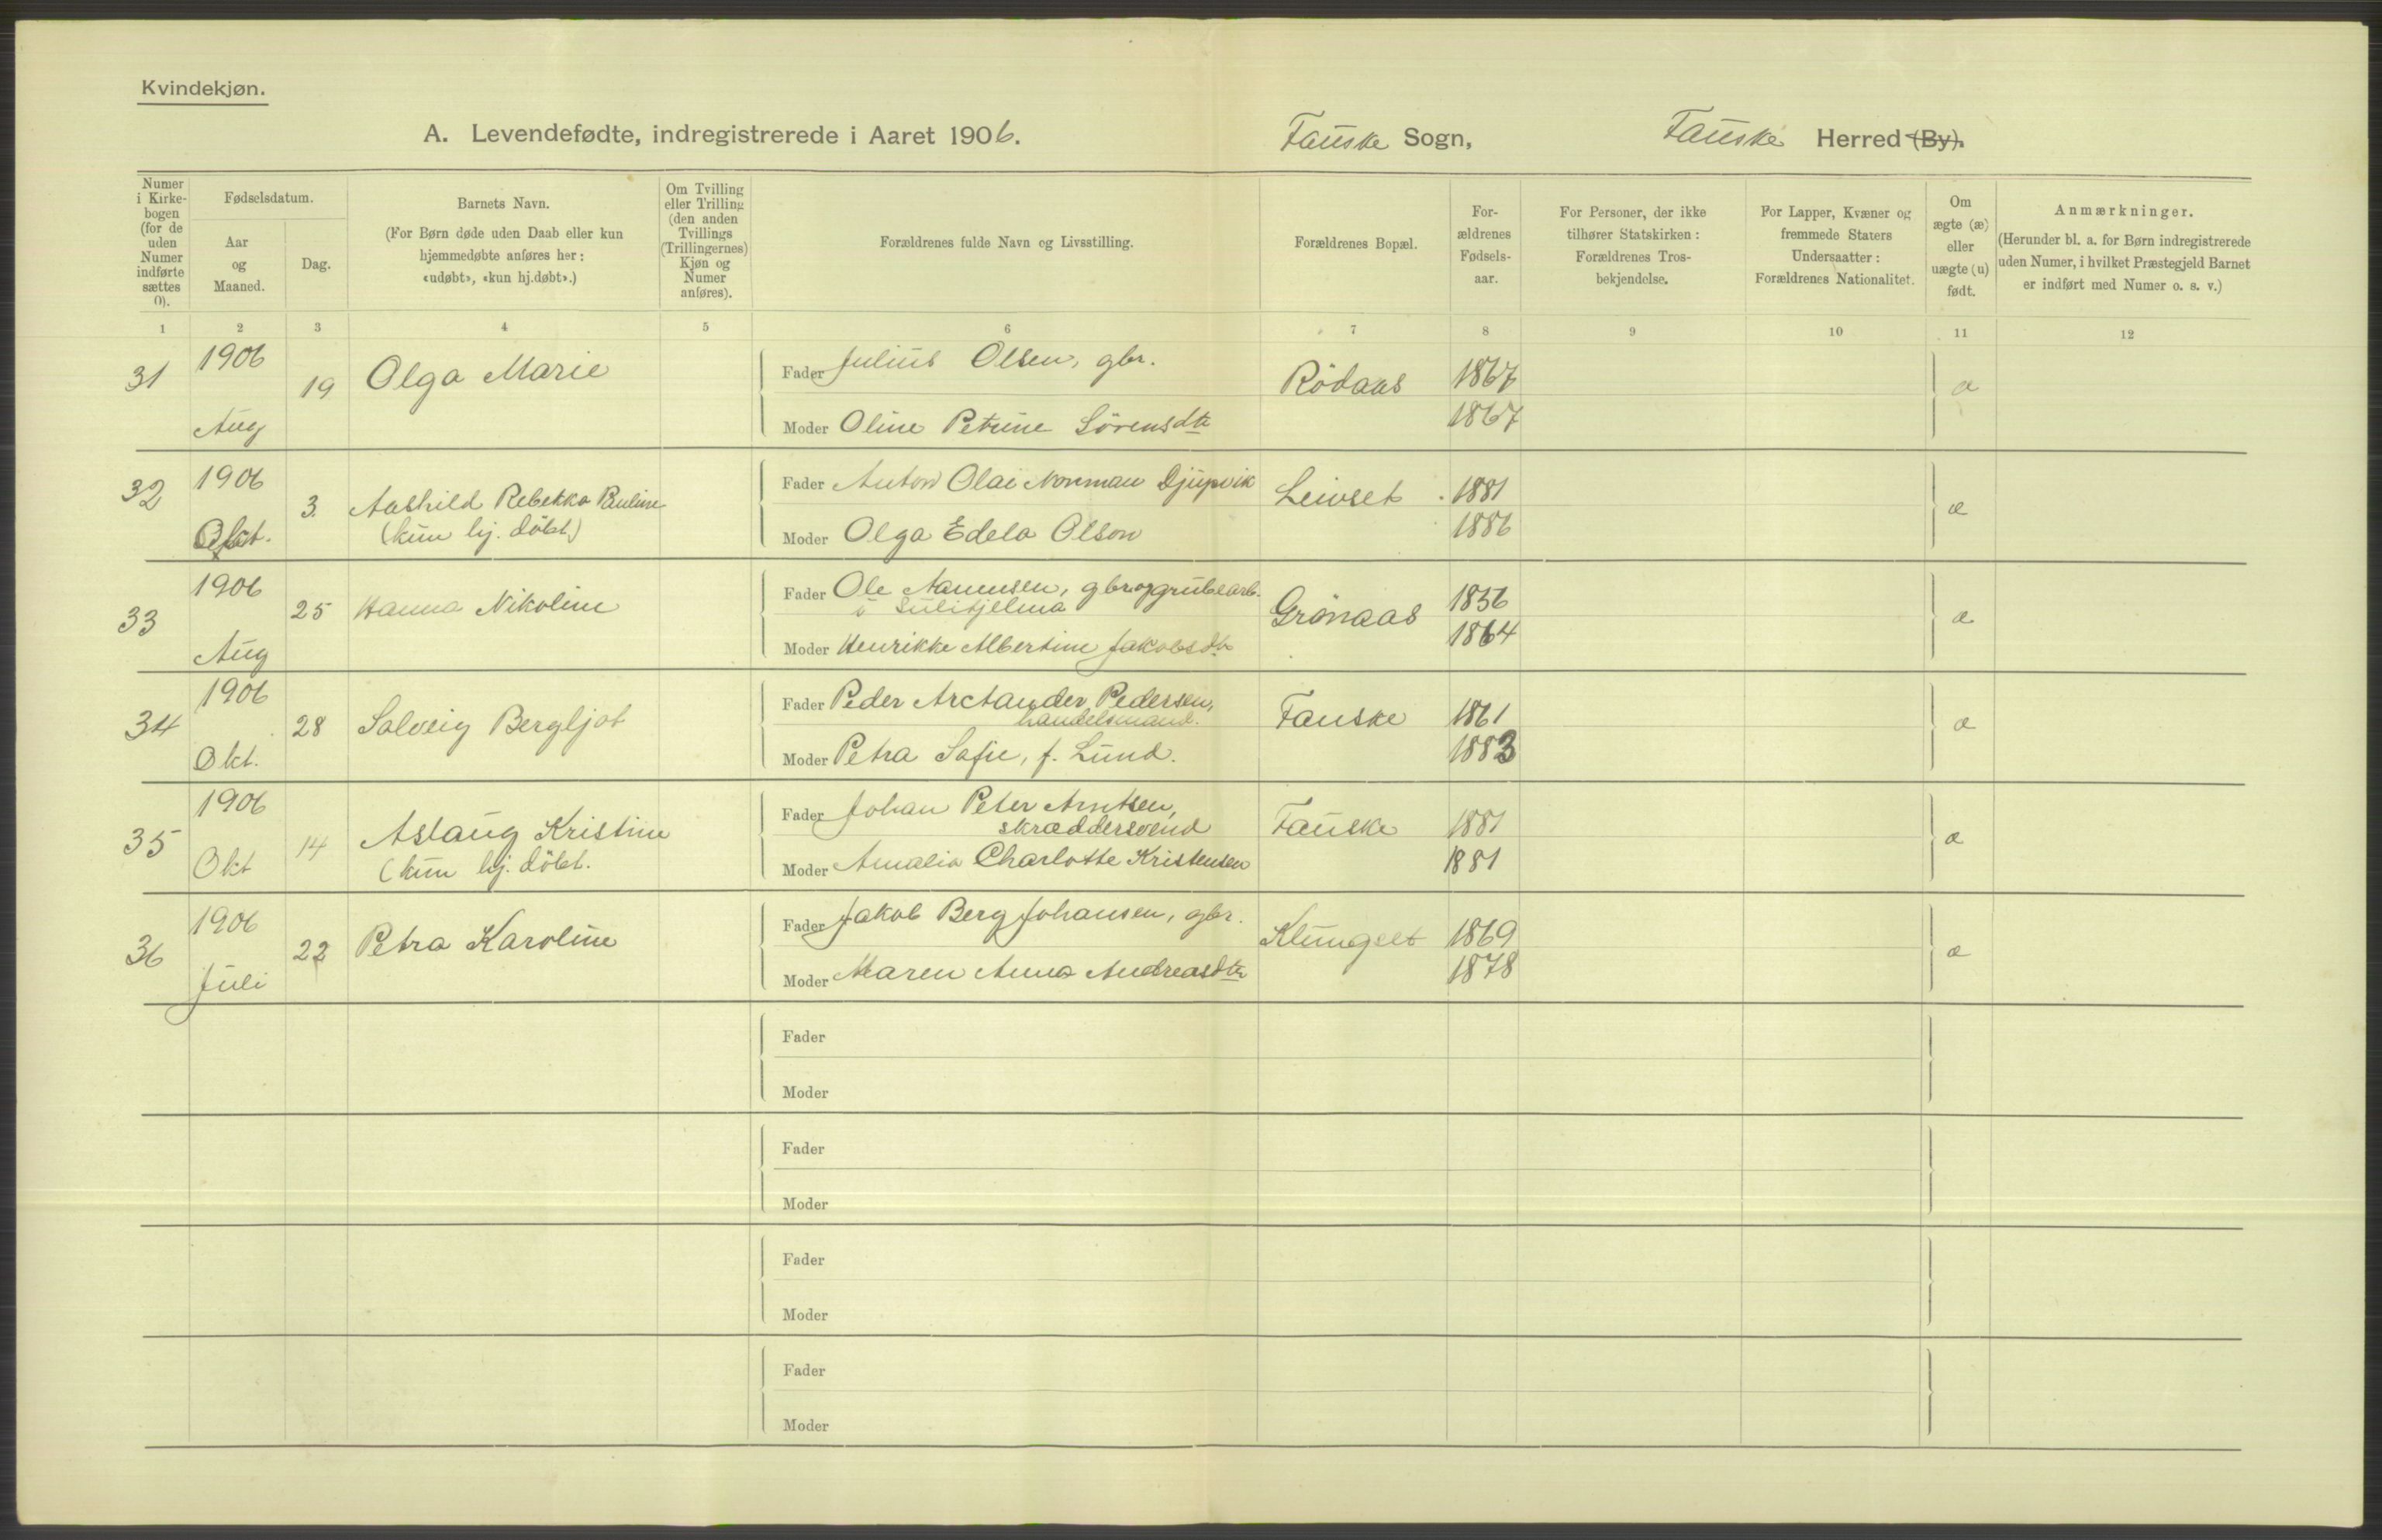 Kvindekjøn.
A. Levendefødte, indregistrerede i Aaret 1906. Fauske Sogn, Fauske Herred (By).
Numer i Kirke-bogen (for de uden Numer indførte sættes 0).
Fødselsdatum.
Aar og Maaned.
Dag.
Barnets Navn.
(For Børn døde uden Daab eller kun hjemmedøbte anføres her: «udøbt», «kun hj.døbt».)
Om Tvilling eller Trilling (den anden Tvillings (Trillingernes) Kjøn og Numer anføres).
Forældrenes fulde Navn og Livsstilling.
Forældrenes Bopæl.
For-ældrenes Fødsels-aar.
For Personer, der ikke tilhører Statskirken: Forældrenes Tros-bekjendelse.
For Lapper, Kvæner og fremmede Staters Undersaatter: Forældrenes Nationalitet.
Om ægte (æ) eller uægte (u) født.
Anmærkninger.
(Herunder bl. a. for Børn indregistrerede uden Numer, i hvilket Præstegjeld Barnet er indført med Numer o. s. v.)
1 2 3 4 5 6 7 8 9 10 11 12
31 1906 Aug 19 Olga Marie Fader Julius Olsen, gbr. Rödaas 1867 æ
Moder Oline Petrine Sörensdtr 1867
32 1906 Okt. 3. Aashild Rebekka Pauline Fader Anton Olai Norman Djupvik Leivset 1881 æ
(kun hj. döbt) Moder Olga Edela Olson 1886
33 1906 Aug 25 Hanna Nikoline Fader Ole Hanssen, gbr og grubearb. Grönaas 1856 æ
i Sulitjelma
Moder Henrikke Albertine Jakobsdtr 1864
34 1906 Okt. 28 Solveig Bergljot Fader Peder Arctander Pedersen, Fauske 1861 æ
handelsmand.
Moder Petra Sofie, f. Lund. 1883
35 1906 Okt 14 Aslaug Kristine Fader Johan Peter Arntsen, Fauske 1881 æ
skræddersvend
(kun hj. döbt. Moder Amalia Charlotte Kristensen 1881
36 1906 Juli 22 Petra Karoline Fader Jakob Berg Johansen, gbr. Klungset 1869 æ
Moder Maren Anna Andreasdtr 1878
Fader
Moder
Fader
Moder
Fader
Moder
Fader
Moder